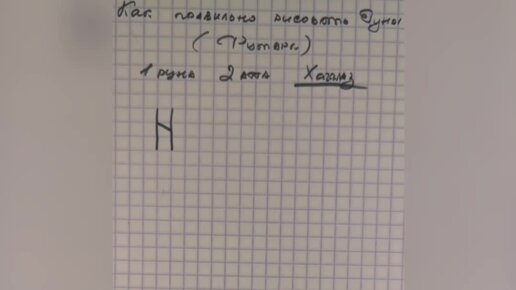 Как правильно рисовать Руны
(Футарк)
1 руна 2 атта Хагалаз